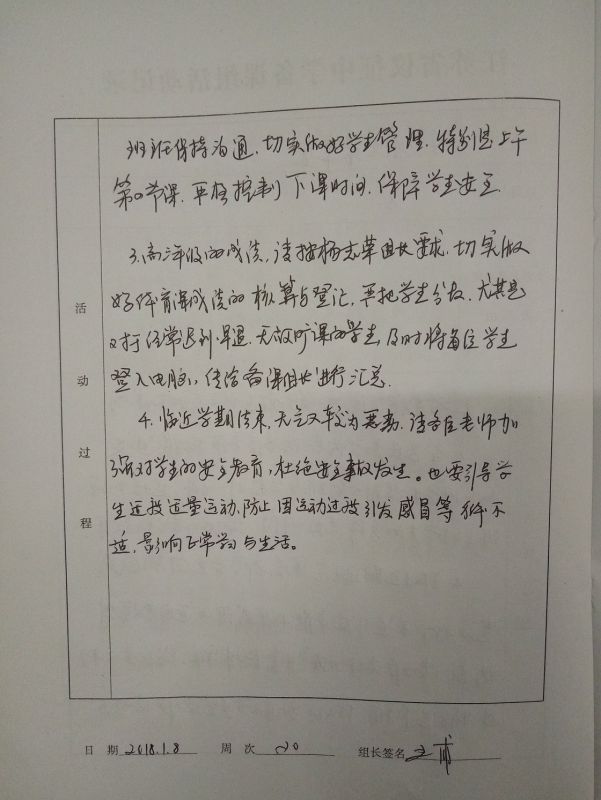 班主任保持沟通,切实做好学生管理,特别是上午
第四节课,严格控制下课时间,保障学生安全.
3.高三年级的成绩,请按杨志草组长要求,切实做
好体育课成绩的核算与登记,严把学生分数,尤其是
对于经常迟到、早退、无故旷课的学生,及时将每位学生
登入电脑,传给备课组长进行汇总.
4.临近学期结束,天气又较为恶劣,请各位老师加
强对学生的安全教育,杜绝安全事故发生。也要引导学
生适度适量运动,防止因运动过度引发感冒等 不
适,影响正常学习与生活。
活动过程
日 期 2018.1.8 周 次 20 组长签名